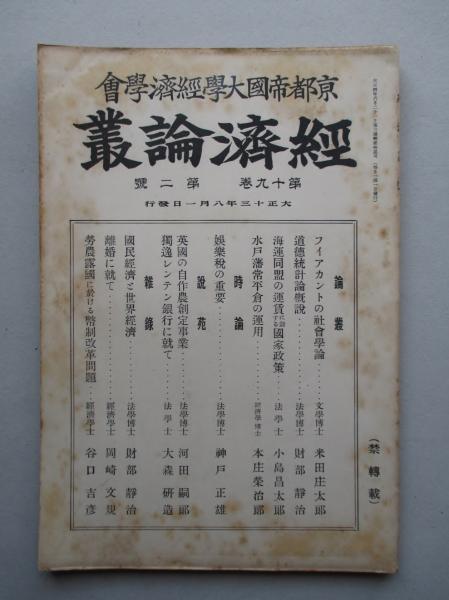 京都帝國大學經濟學會
經濟論叢
第十九卷 第二號
大正十三年八月一日發行
論叢
フイアカントの社會學論 文學博士 米田庄太郎
道德統計論概說 法學博士 財部靜治
海運同盟の運賃に對する國家政策 法學士 小島昌太郎
水戸藩常平倉の運用 經濟學博士 本庄榮治郎
時論
娛樂稅の重要 法學博士 神戸正雄
說苑
英國の自作農創定事業 法學博士 河田嗣郎
獨逸レンテン銀行に就て 法學士 大森研造
雜錄
國民經濟と世界經濟 法學博士 財部靜治
離婚に就て 經濟學士 岡崎文規
勞農露國に於ける幣制改革問題 經濟學士 谷口吉彦
(禁轉載)